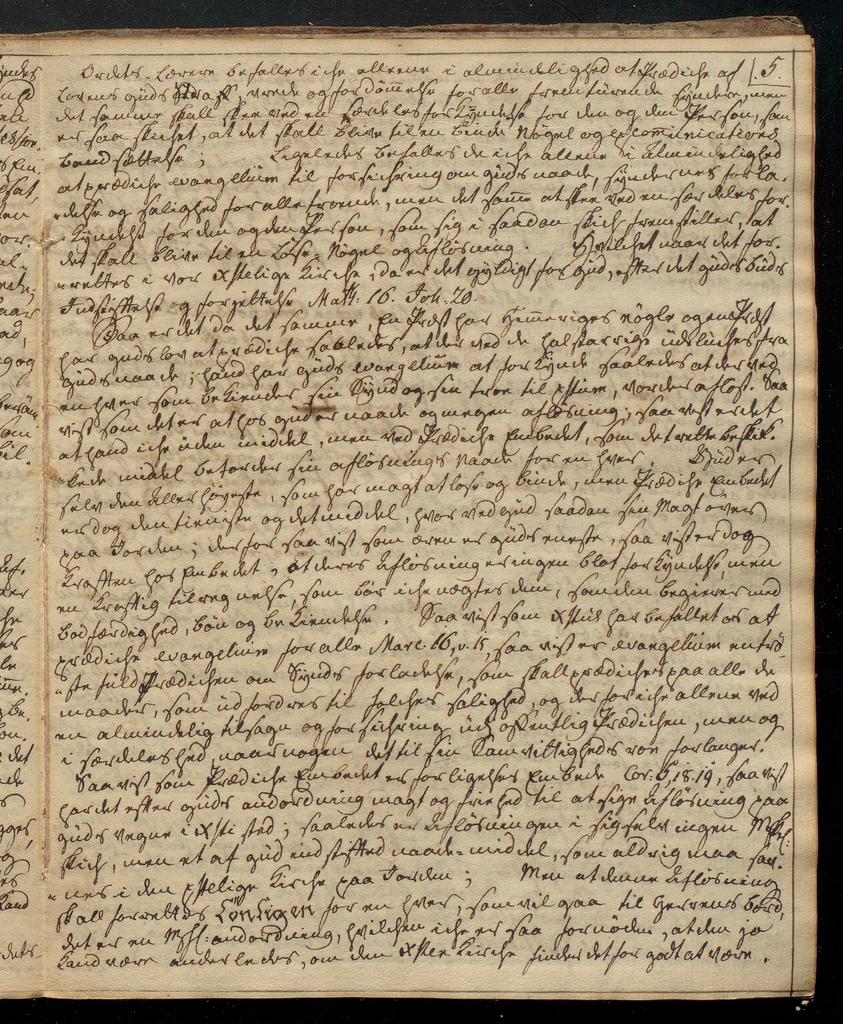 5.
Ordets Lærere befalles iche alleene i almindelighed at Prædiche af
Lovens Guds Straf, vrede og fordømmelse for alle fremturende Syndere, men
det samme skall skee ved en særdeles forkyndelse for den og den Person, som
er saa skichet, at det skall blive til en binde Nøgel og Excommunications
band sættelse; Ligeledes befalles de iche allene i Almindelighed
at prædiche Evangelium til forsichring om Guds naade, syndernes forla-
-delse og Salighed for alle troende, men det samme at skee ved en særdeles for-
-kyndelse for den og den Person, som sig i saadan skich fremstiller, at
det skall blive til en Løse-Nøgel og Afløsning. Hvilchet naar det for-
-rettes i vor Xstelige Kirche, da er det gyldigt for Gud, efter det Guds Buds
Indstiftelse og forjettelse Math: 16. Joh. 20.
Saa er det da det samme, En Præst har Himmeriges nøgle og en Præst
har Guds lov at prædiche saaledes, at der ved de halstarrige udeluches fra
Guds naade; hand har Guds Evangelium at forkynde saaledes at der ved
en hver som bekiender sin Synd og sin troe til Xstum, vorder afløst. Saa
vist som det er at hos Gud er naade og megen afløsning, saa vist er det
at hand iche uden middel, men ved Prædiche Embedet, som det rette beskik-
-kede middel betorder sin afløsnings Naade for en hver. Gud er
selv den Allerhøyeste, som har magt at løse og binde, men Prædiche Embedet
er dog den tieniste og det middel, hvor ved Gud saadan sin Magt øver
paa Jorden; derfor saa vist som æren er Guds eneste, saa vist er dog
Krafften hos Embedet, at deres Afløsning er ingen blot forkyndelse, men
en Kraftig tilregnelse, som bør iche nægtes dem, som den begierer med
bodfærdighed, bøn og bekiendelse. Saa vist som Xstus har befallet os at
prædiche Evangelium for alle Marc. 16, v. 15, saa vist er Evangelium en trø-
-stefuld Prædichen om Synds forladelse, som skall prædiches paa alle de
maader, som udfordres til folches salighed, og derfor iche allene ved
en almindelig tilsagn og forsichring udj offentlig Prædichen, men og
i særdeleshed, naar nogen det til sin Samvittigheds roe forlanger.
Saa vist som Prædiche Embedet er forligelses Embede Cor: 5, 18. 19, saa vist
har det efter Guds andordning magt og friehed til at sige Afløsning paa
Guds vegne i Xsti sted; saaledes er Afløsningen i sig selv ingen Mskl:
skich, men et af Gud indstifted naade-middel, som aldrig maa sav-
-nes i den Xstelige Kirche paa Jorden; Men at denne Afløsning
skall forrettes Lønligen for en hver, som vil gaa til Herrens bord,
det er en Mskl: andordning, hvilchen iche er saa fornøden, at den jo
kand være anderledes, om den Xstne Kirche finder det for godt at være.